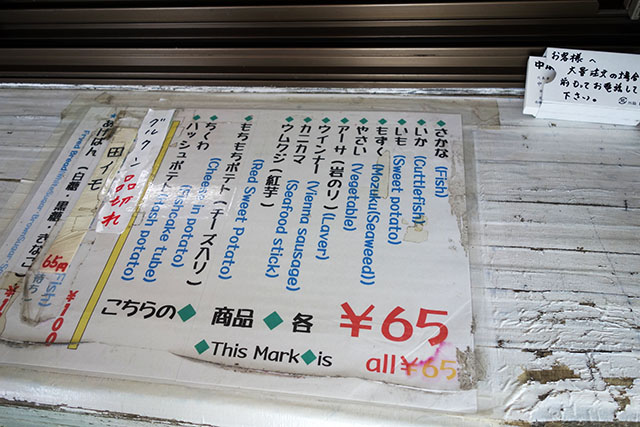 お客様へ
大量注文の場合
前もってお電話して
下さい。
さかな (Fish)
いか (Cuttlefish)
いも (Sweet potato)
もずく (Mozuku(Seaweed))
やさい (Vegetable)
アーサ (岩のり) (Laver)
ウインナー (Vienna sausage)
カニカマ (Seafood stick)
ウムクジ (紅芋) (Red Sweet Potato)
もちもちポテト (チーズ入り) (Cheese in potato)
ちくわ (Fishcake tube)
ハッシュポテト (Hash potato)
こちらの◆ 商品 ◆ 各 ¥65
◆This Mark◆is all ¥65
グルクン 品切れ
田イモ
あげぱん (白糖・黒糖・きなこ)
65円
¥100